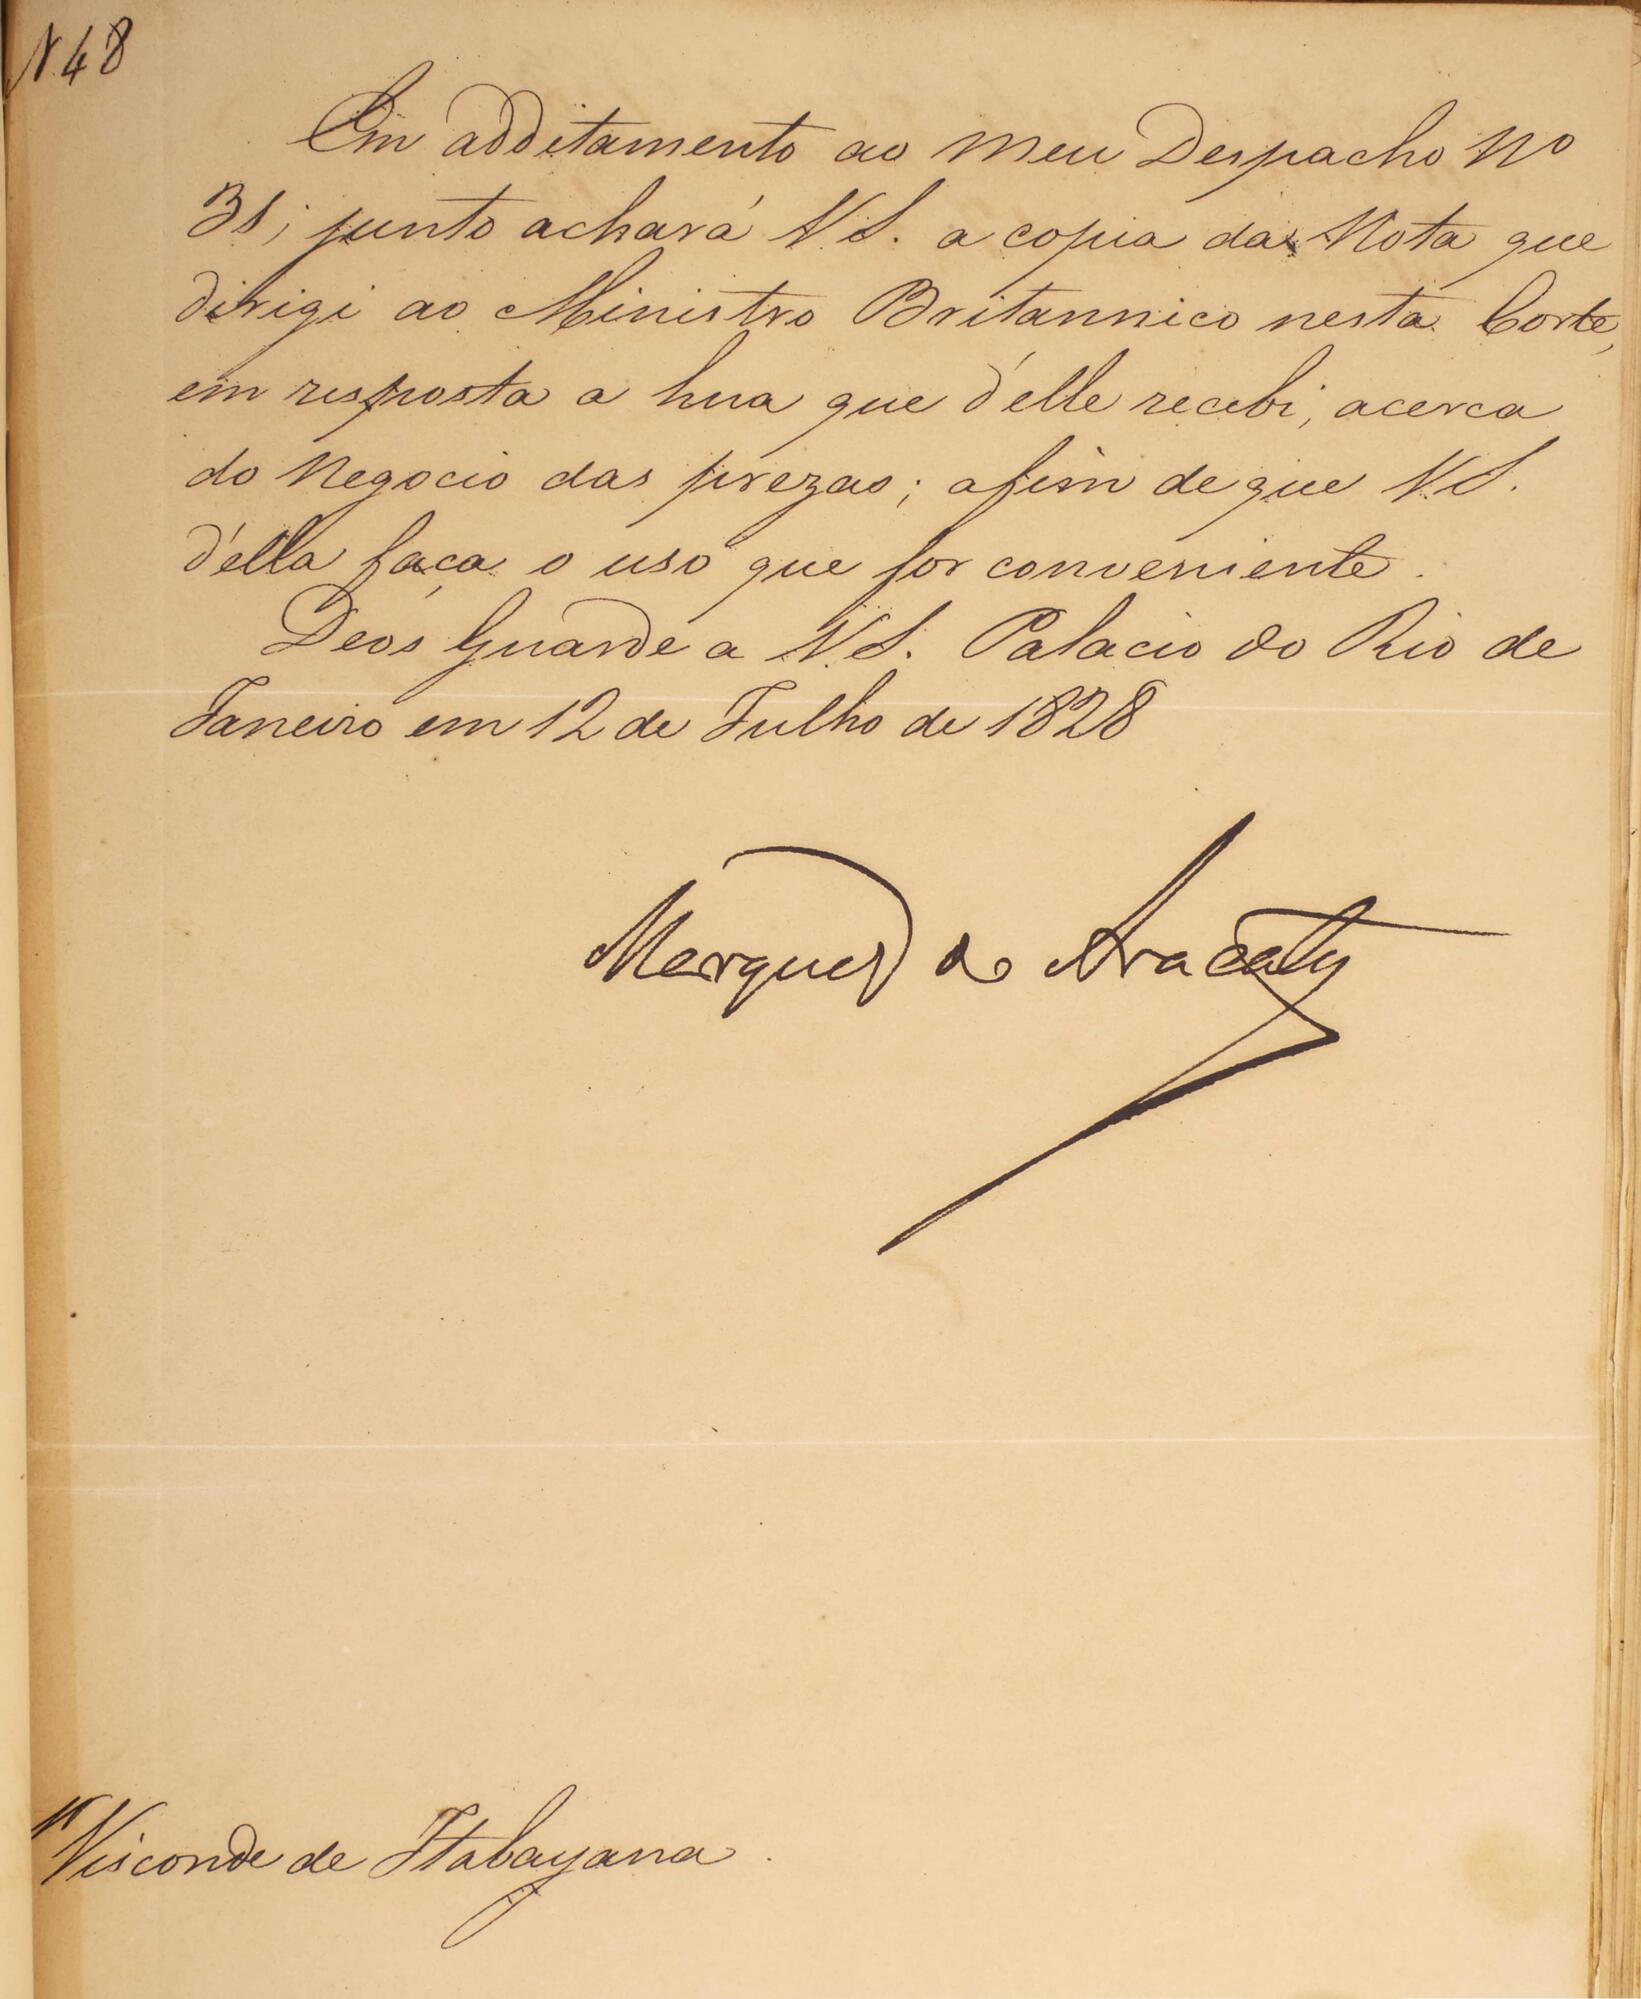 N. 48
Em additamento ao meu Despacho Nº
31; junto achará V.S. a copia da Nota que
dirigi ao Ministro Britannico nesta Corte,
em resposta a hua que d'elle recebi, acerca
do Negocio das prezas; afim de que V.S.
d'ella faça o uso que for conveniente.
Deos Guarde a V.S. Palacio do Rio de
Janeiro em 12 de Julho de 1828
Marquez de Aracaty
Visconde de Itabayana.